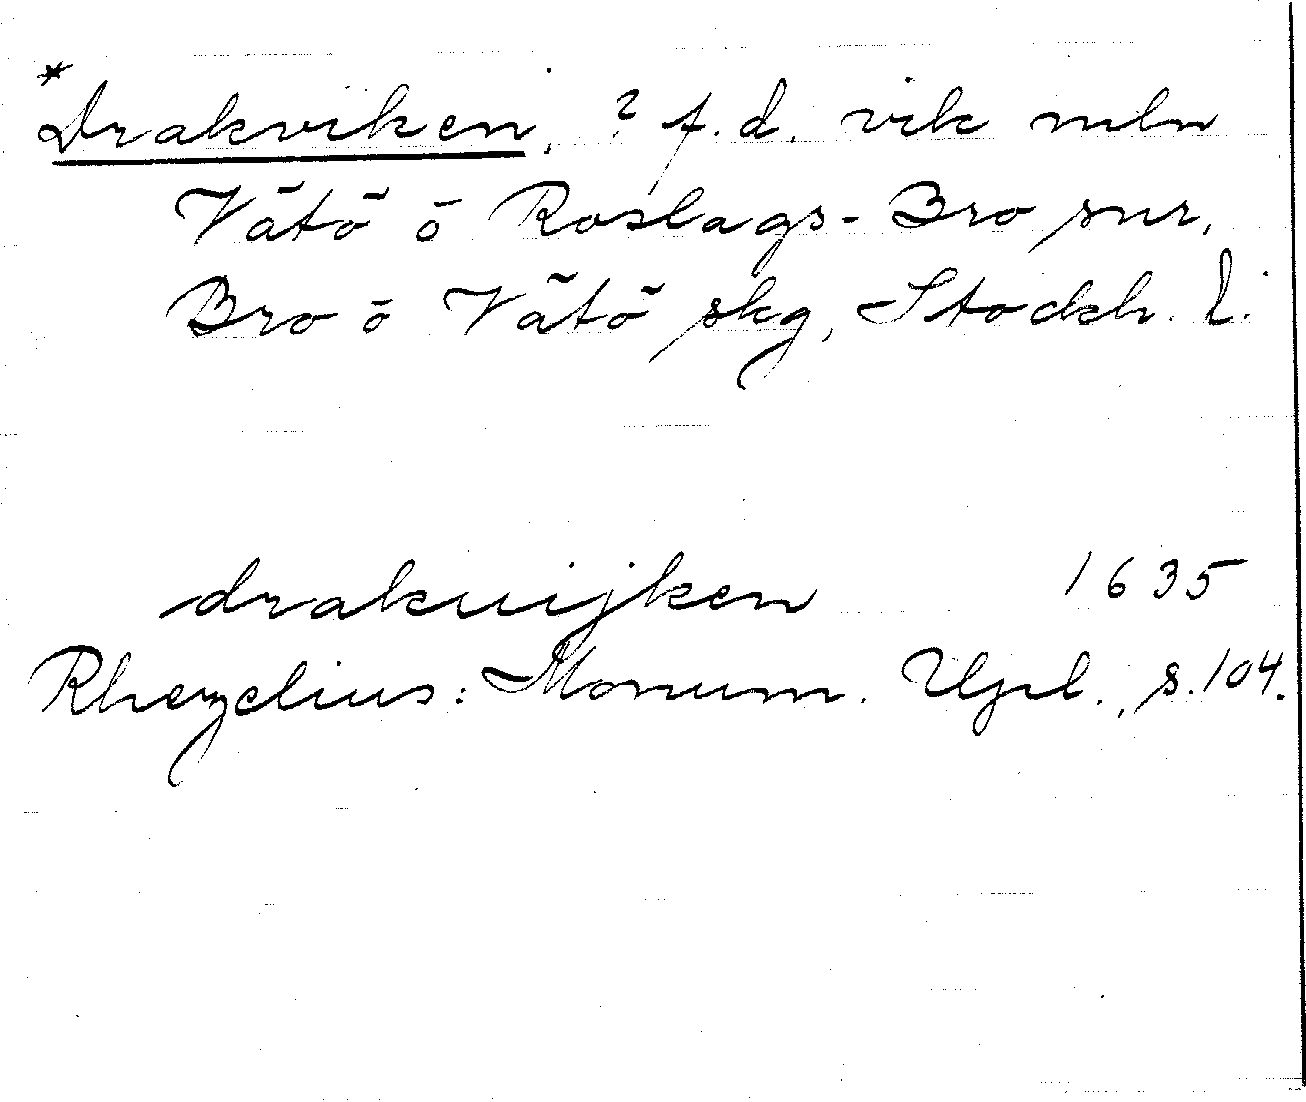 *Drakviken, ? f.d. vik mln
Vätö ö Roslags-Bro snr,
Bro ö Vätö skg, Stockh. l.
drakuijken 1635
Rhezelius: Monum. Upl., s.104.